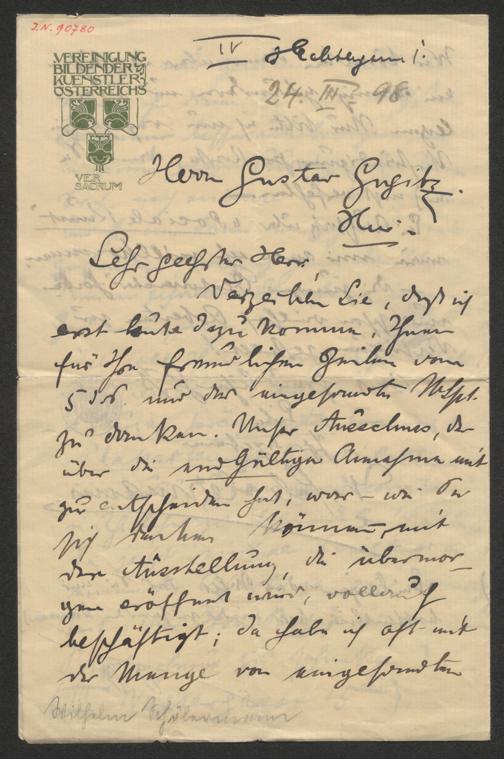 J.N. 90780
VEREINIGUNG
BILDENDER
KUENSTLER
ÖSTERREICHS
VER
SACRUM
IV
24. III 98
Herrn Gustav Gugitz.
Hier.
Sehr geehrter Herr!
Verzeihen Sie, daß ich
erst heute dazu komme, Ihnen
für Ihre freundlichen Zeilen vom
5 ds. und das eingesandte Mspt.
zu danken. Unser Ausschuss, der
über die endgültige Annahme mit
zu entscheiden hat, war – wie Sie
sich denken können – mit
der Ausstellung, die übermor-
gen eröffnet wird, vollauf
beschäftigt; da habe ich oft mit
der Menge von eingesandten
Wilhelm Schölermann